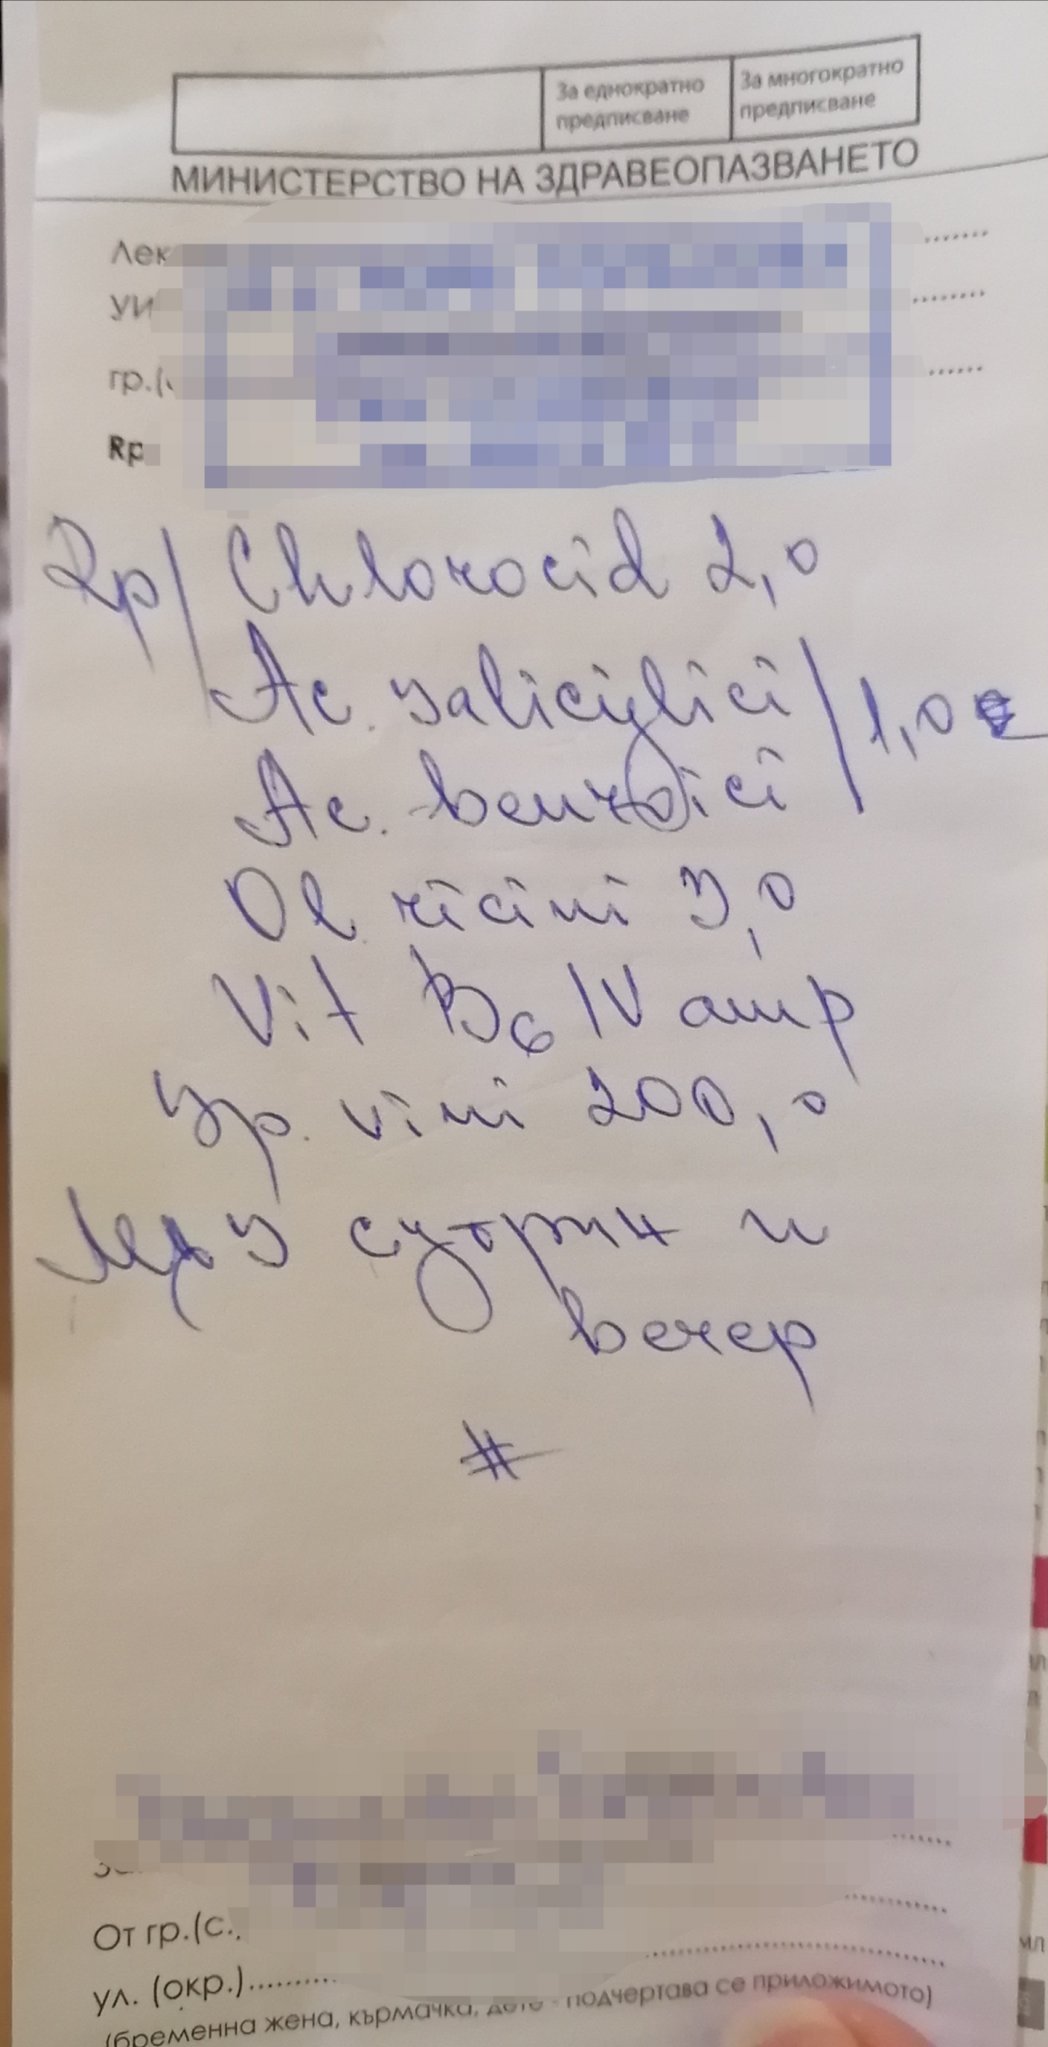 За еднократно предписване
За многократно предписване
МИНИСТЕРСТВО НА ЗДРАВЕОПАЗВАНЕТО
Rp
Rp/ Chlorocid 2,0
Ac. salicylici / 1,0
Ac. benzoici
Ol. ricini 3,0
Vit B6 IV amp
Sp. vini 200,0
сутрин и
вечер
#
От гр.(с.
ул. (окр.)
(бременна жена, кърмачка, дете - подчертава се приложимото)